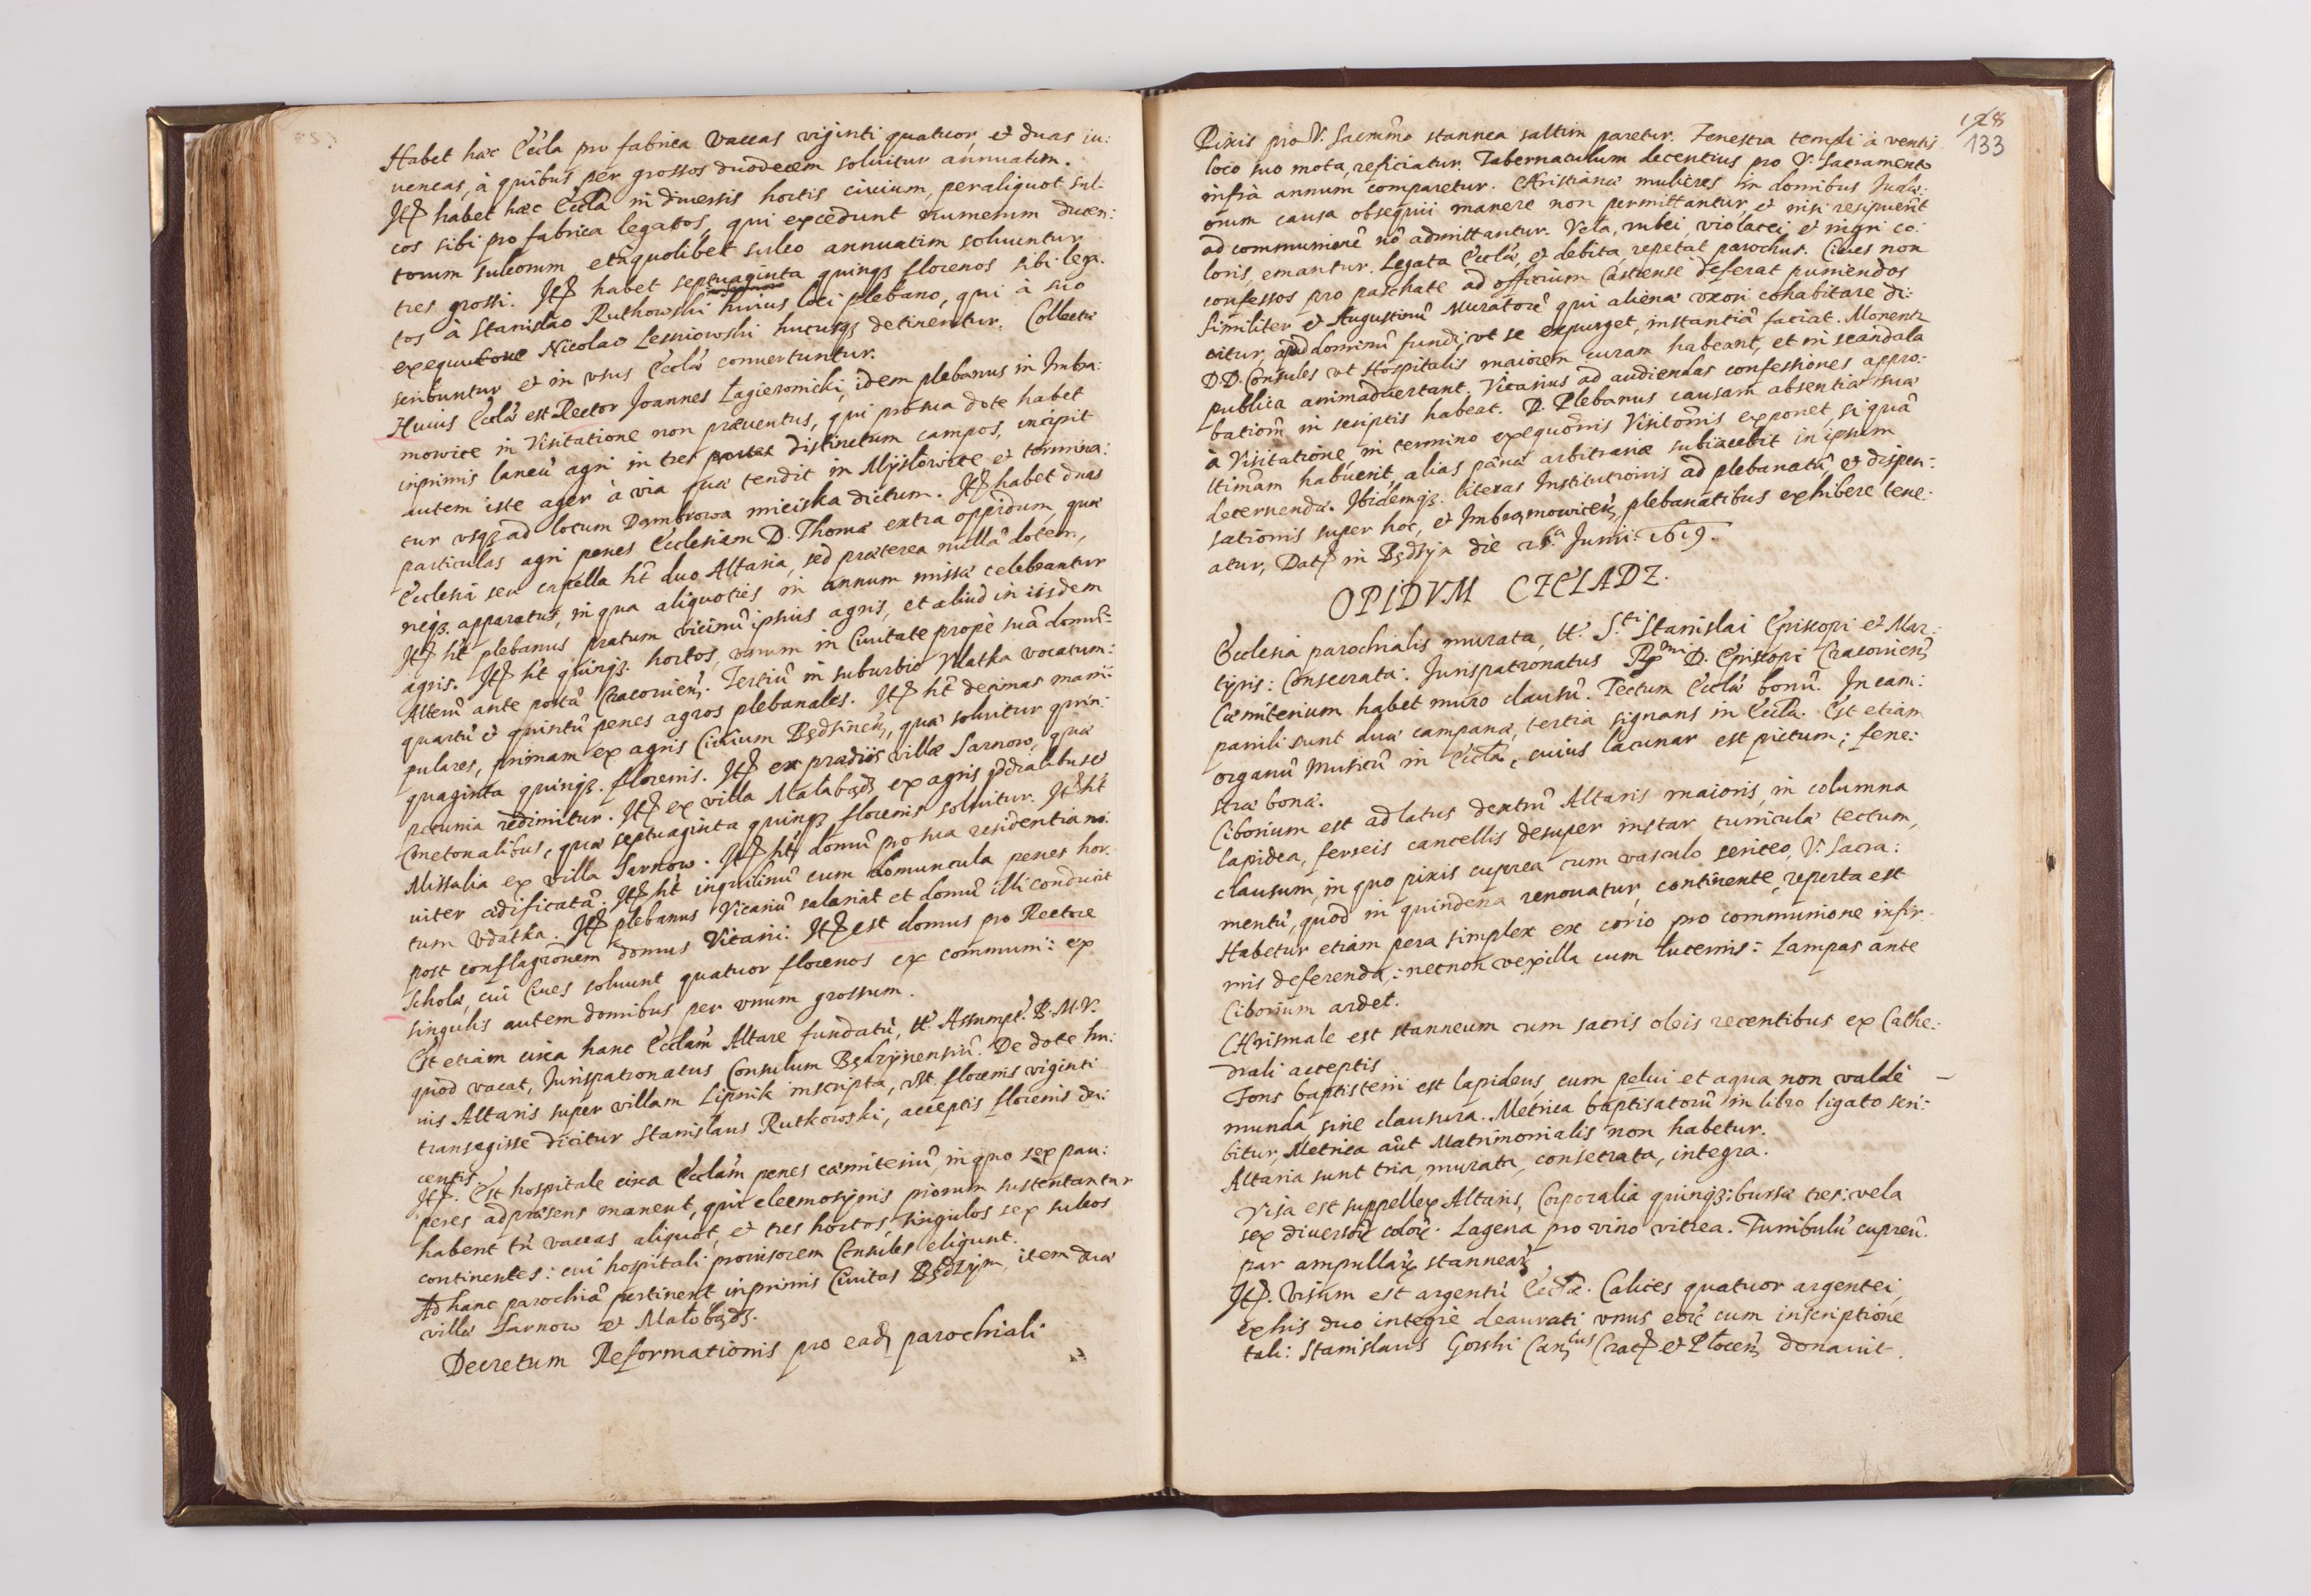 Habet hæc Eccla pro fabrica vaccas viginti quatuor, et duas iu:
uencas, à quibus per grossos duodecem soluitur annuatim.
Itp habet hæc Eccla in diuersis hortis ciuium, per aliquot sul:
cos sibi pro fabrica legatos, qui excedunt numerum ducen:
torum sulcorum et à quolibet sulco annuatim soluuntur
tres grossi. Itp habet septuaginta quinqz florenos sibi lega:
tos à Stanislao Rutkowski huius loci plebano, qui à suo
Nicolao Lesniowski hucusqz detinentur. Collectæ
scribuntur et in vsus Ecclæ conuertuntur.
Huius Ecclæ est Rector Joannes Łagiewnicki, idem plebanus in Imbra:
mowice in Visitatione non præuentus, qui pro sua dote habet
inprimis laneũ agri in tres partes distinctum campos, incipit
autem iste ager à via quæ tendit in Mysłowice et termina:
tur vsqz ad locum Dąmbrowa mieiska dictum. Itp habet duas
particulas agri penes Ecclesiam D. Thomæ extra oppidum, quæ
Ecclesia seu capella ht duo Altaria, sed præterea nullã dotem,
neqz apparatus, in qua aliquoties in annum missæ celebrantur
Itp ht plebanus pratum vicinũ ipsius agris, et aliud in iisdem
agris. Itp ht quinqz hortos, vnum in Ciuitate propè suã domũ:
Alterũ ante portã Cracouien. Tertiũ in suburbio Vlatka vocatum:
quartũ et quintũ penes agros plebanales. Itp ht decimas mani:
pulares, primam ex agris Ciuium Będsinen, quæ soluitur quin:
quaginta quinqz florenis. Itp ex prædiis villæ Sarnow, quæ
pecunia redimitur. Itp ex villa Malabądz ex agris prædialibus et
Cmetonalibus, quæ septuaginta quinqz florenis soluitur. Itp ht
Missalia ex villa Sarnow. Itp ht domũ pro sua residentia no:
uiter ædificatã. Itp ht inquilinũ cum domuncula penes hor:
tum Vdatka. Itp plebanus Vicariũ salariat et domũ illi conducit
post conflagronem domus Vicarii. Itp est domus pro Rectore
Scholæ, cui Ciues soluunt quatuor florenos ex communi: ex
singulis autem domibus per vnum grossum.
Est etiam circa hanc Ecclam Altare fundatũ, tt. Assumpt. B.M.V.
quod vacat, Jurispatronatus Consulum Będzynensiũ. De dote hu:
uis Altaris super villam Lipnik inscripta, vt florenis viginti
transegisse dicitur Stanislaus Rutkowski, acceptis florenis du:
centis.
Itp. Est hospitale circa Ecclam penes cæmiteriũ, in quo sex pau:
peres ad præsens manent, qui eleemosynis piorum sustentantur
habent tñ vaccas aliquot, et tres hortos, singulos sex sulcos
continentes: cui hospitali prouisorem Consules eligunt.
Ad hanc parochiã pertinent inprimis Ciuitas Będzyn, item duæ
villæ Sarnow et Małobądz.
Decretum Reformationis pro eadz parochiali
128
133
Pixis pro V. Sacrmo stannea saltim paretur. Fenestra templi à ventis
loco suo mota, reficiatur. Tabernaculum decentius pro V. Sacramento
infrà annum comparetur. Christianæ mulieres in domibus Judæ:
orum causa obsequii manere non permittantur, et nisi resipuerĩt
ad communionẽ nõ admittantur. Vela, rubei, violacei, et nigri co:
loris, emantur. Legata Ecclæ, et debita, repetat parochus. Ciues non
confessos pro paschate ad officium Castrense deferat puniendos
Similiter et Augustinũ Muratorẽ qui alienæ vxori cohabitare di:
citur, apud dominũ fundi, vt se expurget, instantiã faciat. Monent
D.D. Consules vt Hospitalis maiorem curam habeant, et in scandala
publica animaduertant. Vicarius ad audiendas confessiones appro:
bationẽ in scriptis habeat. D. Plebanus causam absentiæ suæ
à Visitatione, in termino exequõnis Visitõnis exponet, si quã
ltimam habuerit, alias pænæ arbitrariæ subiacebit in ipsum
decernendæ. Ibidemqz literas Institutionis ad plebanatũ, et dispen:
sationis super hoc, et Imbramowicen plebanatibus exhibere tene:
atur, Datp in Będzyn die 26.ta Junii 1619.
OPIDVM CZELADZ.
Ecclesia parochialis murata, tt. S.ti Stanislai Episcopi et Mar:
tyris: Consecrata: Jurispatronatus R.mi D. Episcopi Cracouien
Cæmiterium habet muro clausũ. Tectum Ecclæ bonũ. In cam:
panili sunt duæ campanæ, tertia signans in Eccla. Est etiam
organũ Musicũ in Eccla, cuius lacunar est pictum; fene:
stræ bonæ.
Ciborium est ad latus dextrũ Altaris maioris, in columna
lapidea, ferreis cancellis desuper instar turriculæ tectum,
clausum, in quo pixis cuprea cum vasculo sericeo, V. Sacra:
mentũ, quod in quindena renouatur, continente, reperta est
Habetur etiam pera simplex ex corio pro communione infir:
mis deferenda: necnon vexilla cum lucernis: Lampas ante
Ciborium ardet.
Chrismale est stanneum cum sacris oleis recentibus ex Cathe:
drali acceptis
Fons baptisterii est lapideus, cum pelui et aqua non valdè
munda, sine clausura. Metrica baptisatorũ in libro ligato scri:
bitur, Metrica aũt Matrimonialis non habetur.
Altaria sunt tria, murata, consecrata, integra.
Visa est suppellex Altaris, Corporalia quinqz: bursæ tres: vela
sex diuersor color. Lagena pro vino vitrea. Turribulũ cupreũ.
par ampullar stannear
Itp. Visum est argentũ Ecclæ. Calices quatuor argentei,
ex his duo integrè deaurati, vnus eor cum inscriptione
tali: Stanislaus Gorski Can.cus Crac et Plocen donauit.